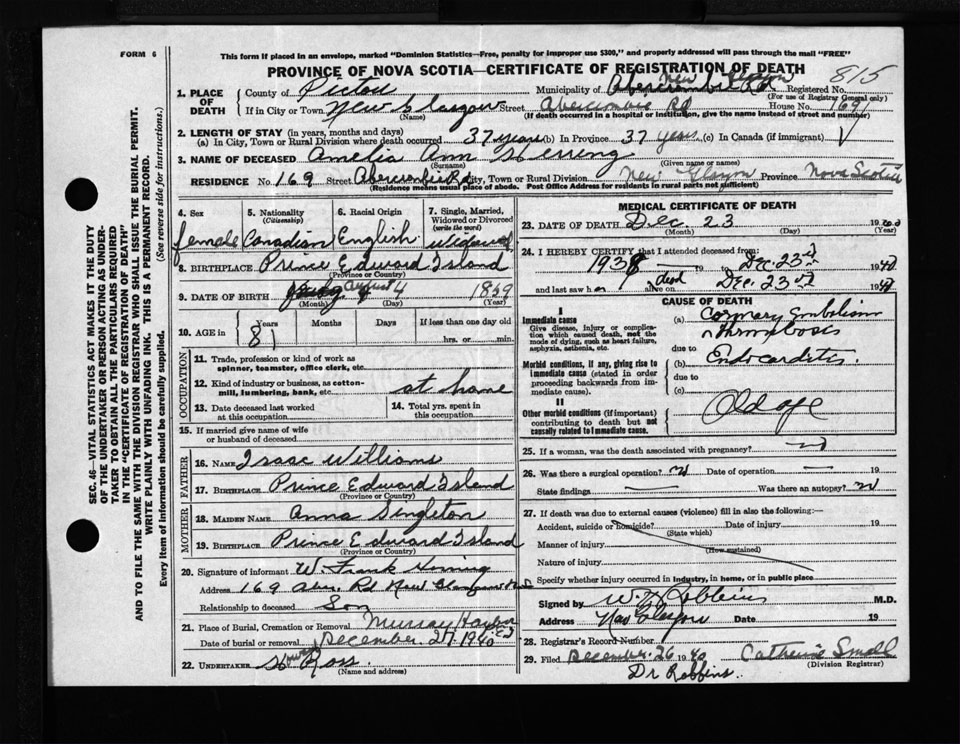 FORM 6
This form if placed in an envelope, marked "Dominion Statistics—Free, penalty for improper use $300," and properly addressed will pass through the mail "FREE"
PROVINCE OF NOVA SCOTIA—CERTIFICATE OF REGISTRATION OF DEATH
815
1. PLACE OF DEATH
County of Pictou
Municipality of Abercrombie Rd New Glasgow
Registered No.
(For use of Registrar General only)
If in City or Town New Glasgow Street Abercrombie Rd House No. 169
(Name)
(If death occurred in a hospital or institution, give the name instead of street and number)
2. LENGTH OF STAY (in years, months and days)
(a) In City, Town or Rural Division where death occurred 37 years (b) In Province 37 years (c) In Canada (if immigrant)
3. NAME OF DECEASED Amelia Ann Herring
(Surname) (Given name or names)
RESIDENCE No. 169 Street Abercrombie Rd City, Town or Rural Division New Glasgow Province Nova Scotia
(Residence means usual place of abode. Post Office Address for residents in rural parts not sufficient)
4. Sex
female
5. Nationality
(Citizenship)
Canadian
6. Racial Origin
English
7. Single, Married, Widowed or Divorced
(write the word)
widowed
8. BIRTHPLACE Prince Edward Island
(Province or Country)
9. DATE OF BIRTH August 4 1859
(Month) (Day) (Year)
10. AGE in
Years Months Days If less than one day old
81 hrs. or min.
OCCUPATION
11. Trade, profession or kind of work as spinner, teamster, office clerk, etc.
12. Kind of industry or business, as cotton-mill, lumbering, bank, etc. at home
13. Date deceased last worked at this occupation
14. Total yrs. spent in this occupation
15. If married give name of wife or husband of deceased
FATHER
16. NAME Isaac Williams
17. BIRTHPLACE Prince Edward Island
(Province or Country)
MOTHER
18. MAIDEN NAME Anna Singleton
19. BIRTHPLACE Prince Edward Island
(Province or Country)
20. Signature of informant W. Frank Herring
Address 169 Aber. Rd New Glasgow N.S
Relationship to deceased Son
21. Place of Burial, Cremation or Removal Murray Harbor
Date of burial or removal December 27 1940
22. UNDERTAKER Ross
(Name and address)
MEDICAL CERTIFICATE OF DEATH
23. DATE OF DEATH Dec 23 1940
(Month) (Day) (Year)
24. I HEREBY CERTIFY that I attended deceased from:
1938 19 to Dec. 23rd 1940
and last saw h dead alive on Dec. 23rd 1940
CAUSE OF DEATH
I
Immediate cause
Give disease, injury or complication which caused death, not the mode of dying, such as heart failure, asphyxia, asthenia, etc.
(a) Coronary Embolism
Thrombosis
due to
Morbid conditions, if any, giving rise to immediate cause (stated in order proceeding backwards from immediate cause).
(b) Endocarditis.
due to
(c)
II
Other morbid conditions (if important) contributing to death but not causally related to immediate cause.
Old age
25. If a woman, was the death associated with pregnancy?
26. Was there a surgical operation? Date of operation 19
State findings Was there an autopsy?
27. If death was due to external causes (violence) fill in also the following:—
Accident, suicide or homicide? Date of injury 19
(State which)
Manner of injury
(How sustained)
Nature of injury
Specify whether injury occurred in industry, in home, or in public place
Signed by Robbins M.D.
Address New Glasgow Date 19
28. Registrar's Record Number
29. Filed December 26 1940 Catherine Small
(Division Registrar)
Dr Robbins
SEC. 46—VITAL STATISTICS ACT MAKES IT THE DUTY
OF THE UNDERTAKER OR PERSON ACTING AS UNDERTAKER TO OBTAIN ALL THE PARTICULARS REQUIRED
IN THE "CERTIFICATE OF REGISTRATION OF DEATH"
AND TO FILE THE SAME WITH THE DIVISION REGISTRAR WHO SHALL ISSUE THE BURIAL PERMIT.
WRITE PLAINLY WITH UNFADING INK. THIS IS A PERMANENT RECORD.
Every item of information should be carefully supplied. (See reverse side for instructions.)